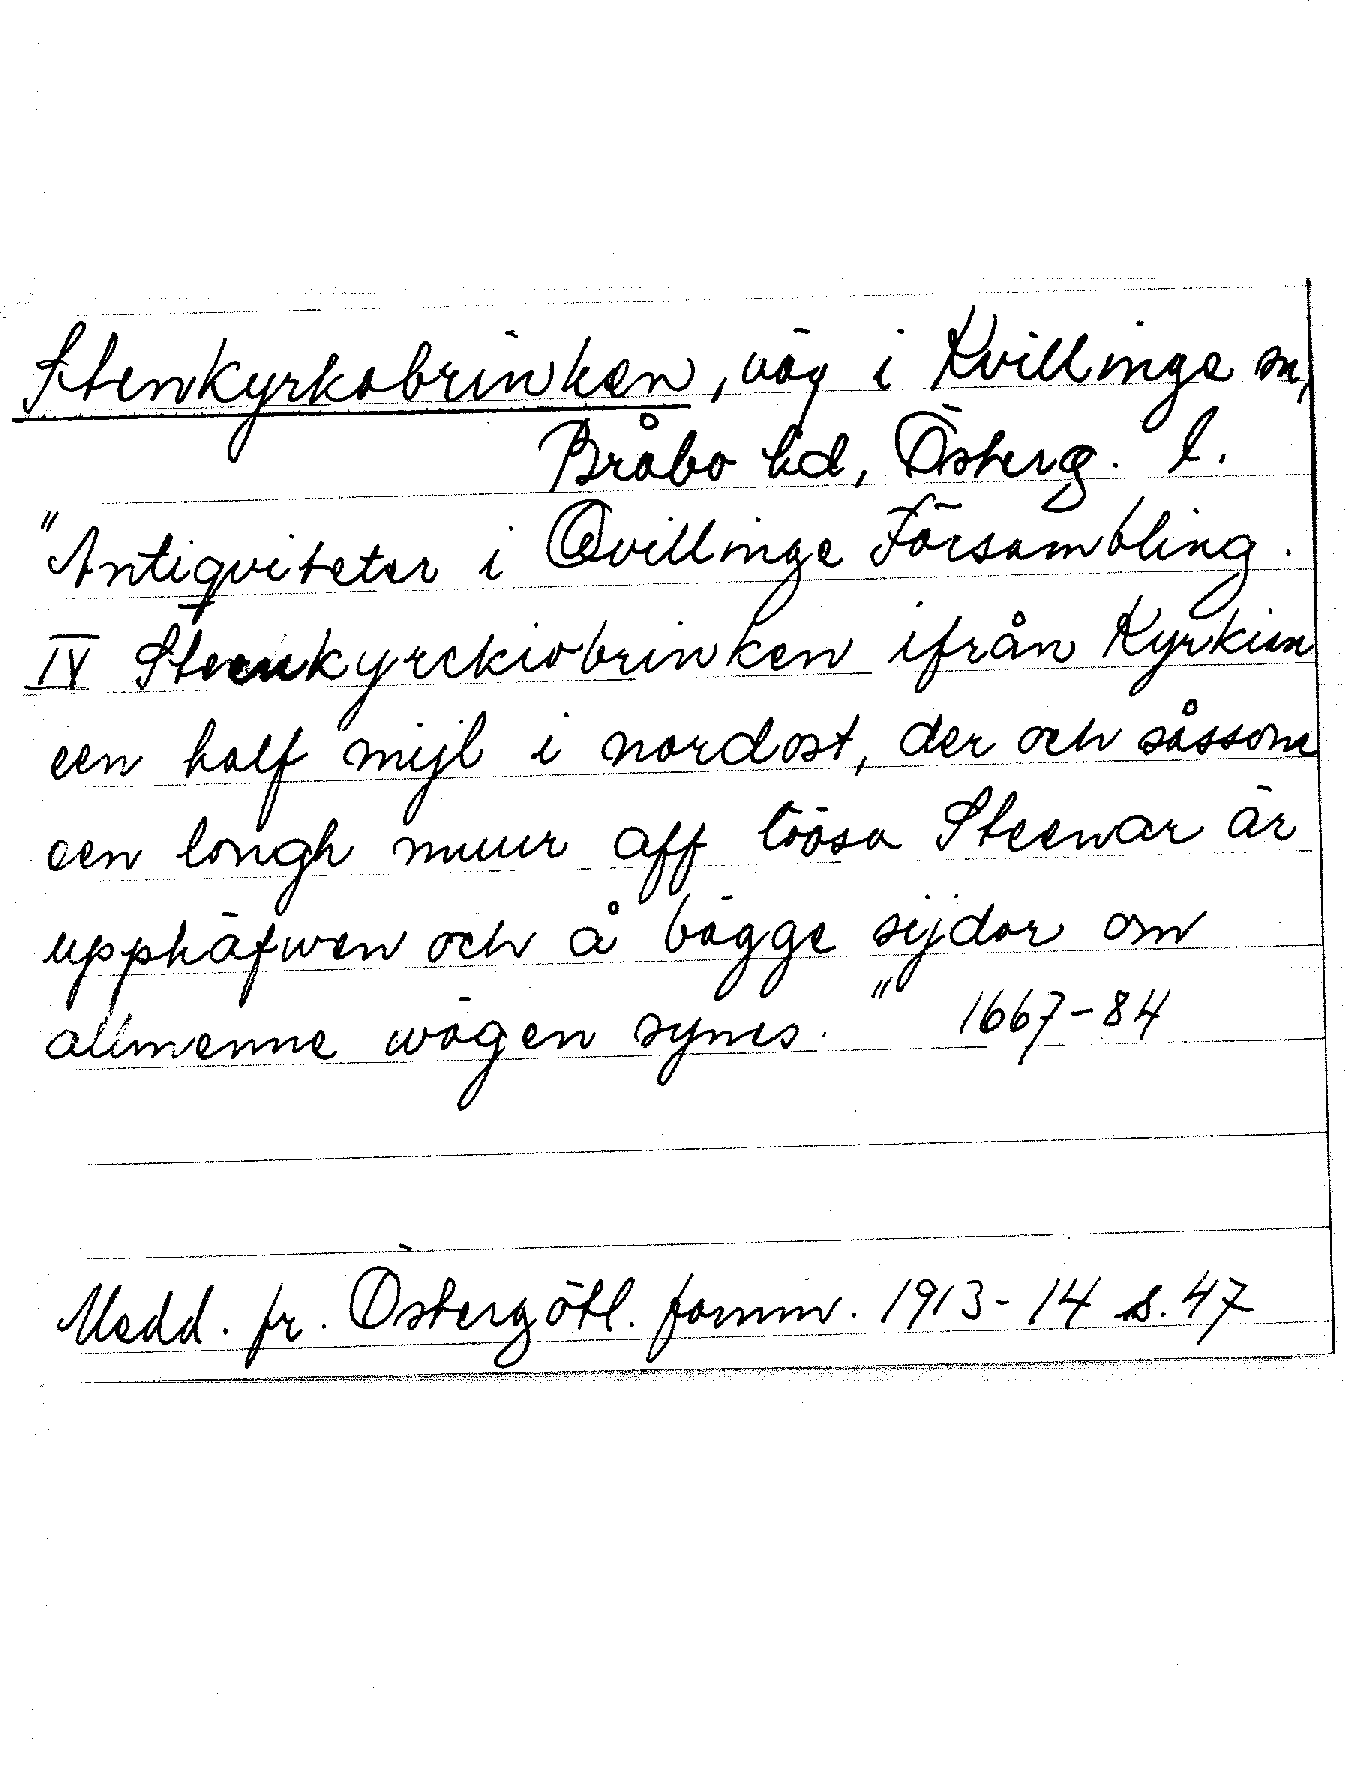 Stenkyrkobrinken, väg i Kvillinge sn,
Bråbo hd, Österg. l.
"Antiqviteter i Qvillinge Försambling.
IV Steenkyrckiobrinken ifrån Kyrkian
een half mijl i nordost, der och såssom
een longh muur aff löösa Steenar är
upphäfwen och å bägge sijdor om
allmenne wägen synes." 1667-84
Medd. fr. Östergötl. fornm. 1913-14 s. 47